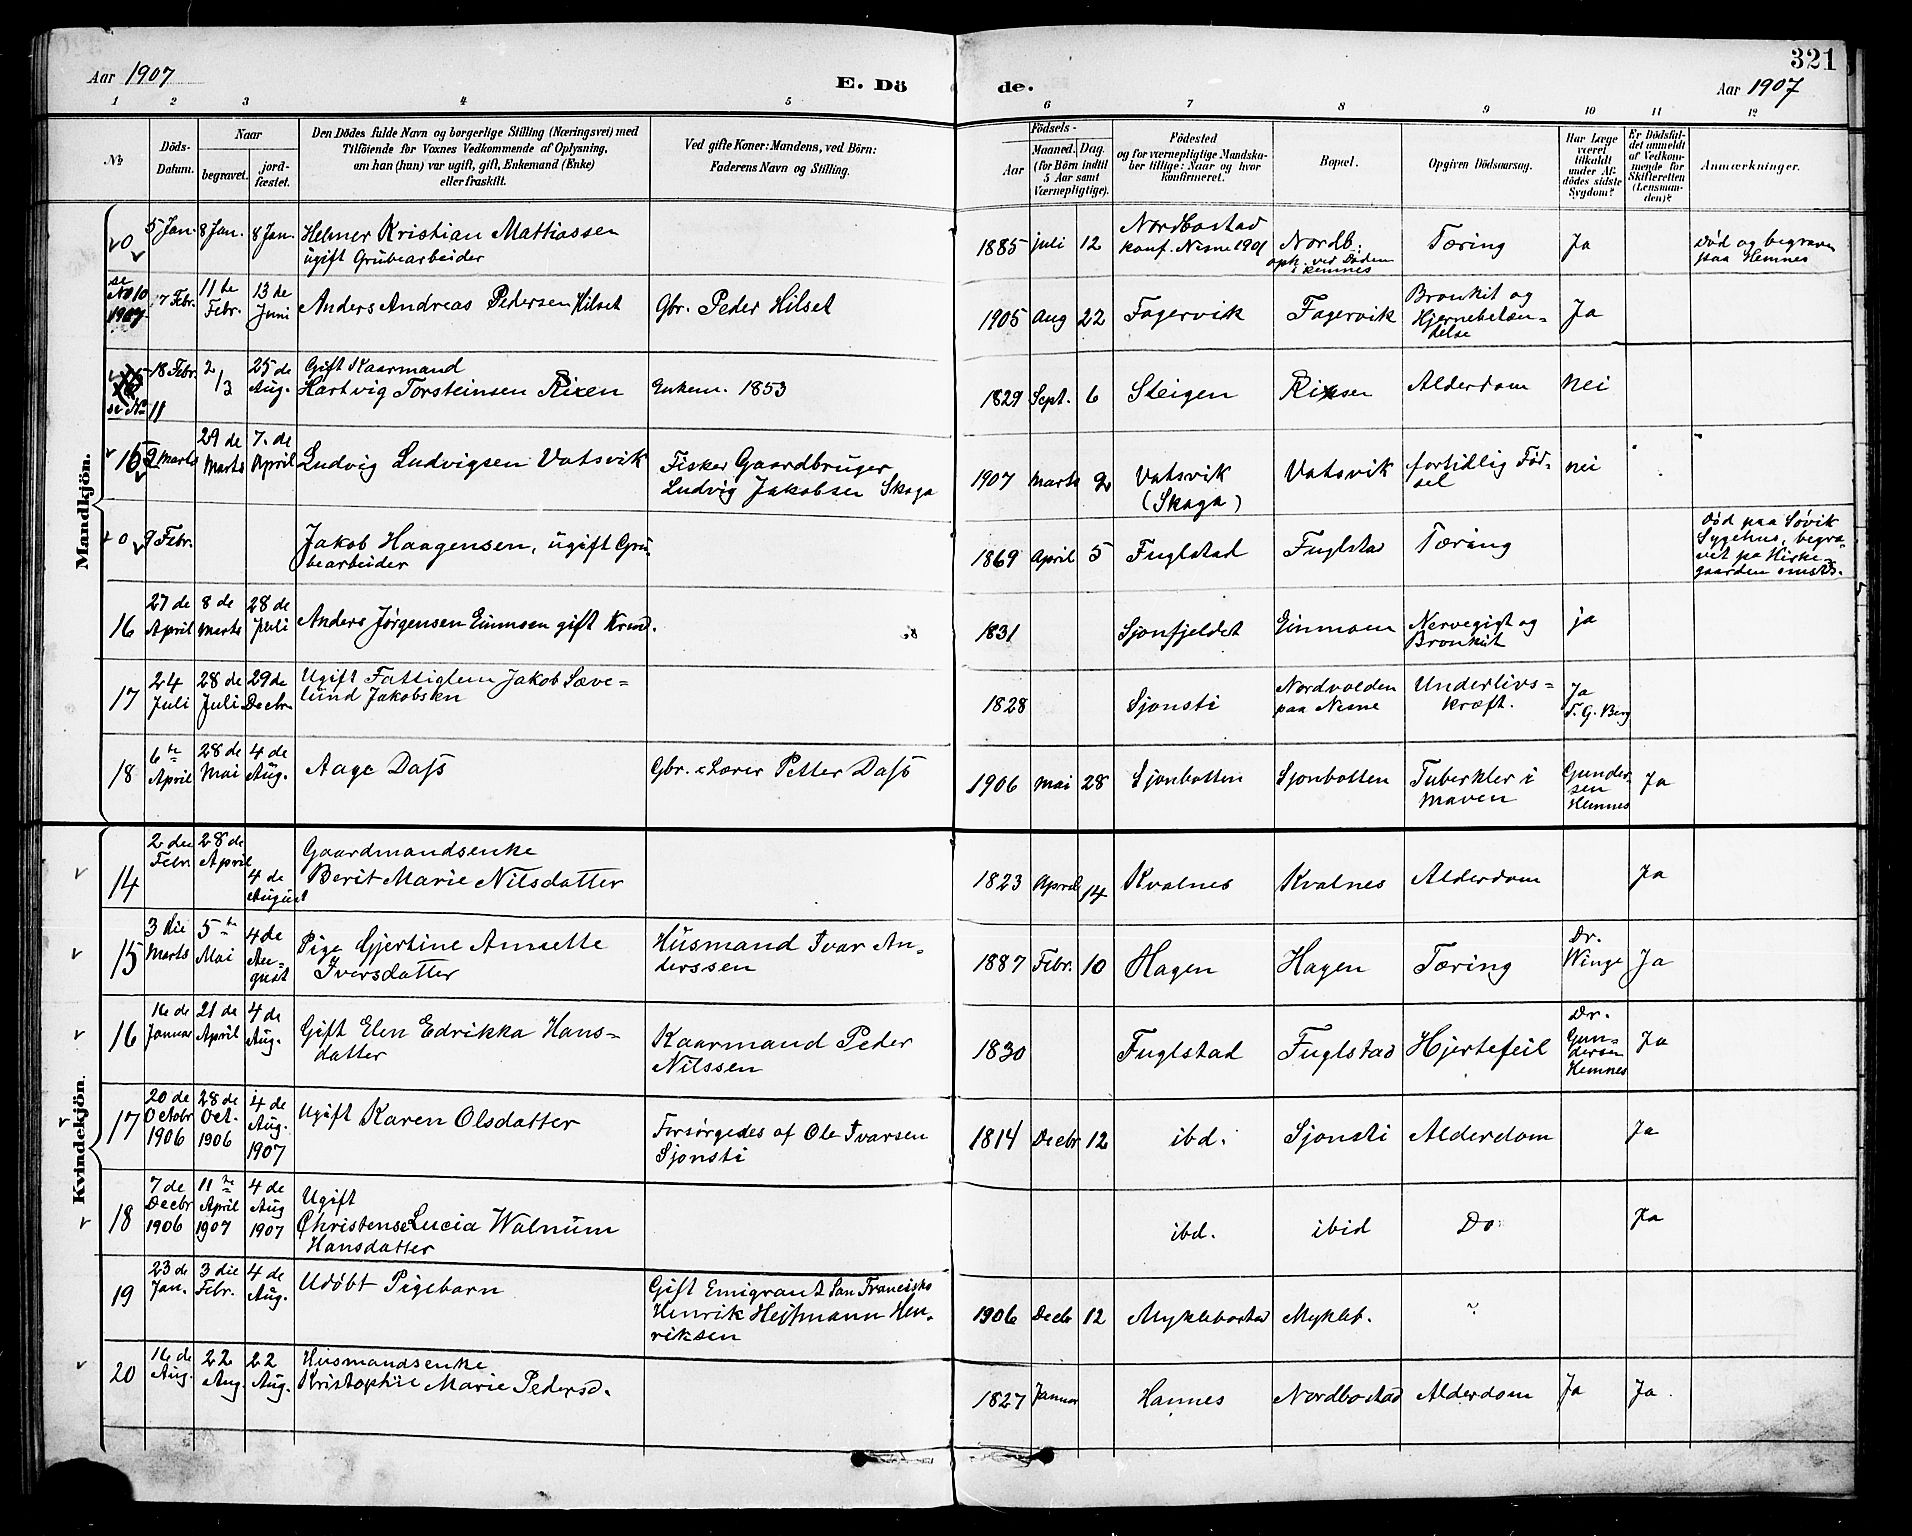 321
Aar 1907
E. Dö
de.
Aar 1907
1 2 3 4 5 6 7 8 9 10 11 12
No
Döds-
Datum.
Naar
begravet.
jord-
fæstet.
Den Dödes fulde Navn og borgerlige Stilling (Næringsvei) med
Tilföiende for Voxnes Vedkommende af Oplysning,
om han (hun) var ugift, gift, Enkemand (Enke)
eller fraskilt.
Ved gifte Koner: Mandens, ved Börn:
Faderens Navn og Stilling.
Födsels-
Aar
Maaned. Dag.
(for Börn indtil
5 Aar samt
Værnepligtige).
Födested
og for værnepligtige Mandska-
ber tillige: Naar og hvor
konfirmeret.
Bopæl.
Opgiven Dödsaarsag.
Har Læge
været
tilkaldt
under Af-
dödes sidste
Sygdom?
Er Dödsfal-
det anmeldt
af Vedkom-
mende for
Skifteretten
(Lensman-
den)?
Anmærkninger.
Mandkjön.
0 5 Jan. 8 Jan. 8 Jan. Helmer Kristian Mattiassen
ugift Grubearbeider
1885 juli 12 Nordbostad
konf. Nesne 1901
Nordb.
oph. ved Döden
i Hemnes
Tæring Ja
Død og begraven
paa Hemnes
se
No 10
1907
7 Febr. 11 de
Febr.
13 de
Juni
Anders Andreas Pedersen Hilset Gbr. Peder Hilset
1905 Aug 22 Fagervik Fagervik
Bronkit og
Hjernebetæn-
delse
Ja
se No 11
18 Febr. 2/3 25 de
Aug.
Gift Kaarmand
Hartvig Torsteinsen Rixen Enkem. 1853
1829 Sept. 6 Steigen Rixsen Alderdom nei
15 2 Marts 29 de
Marts
7. de
April
Ludvig Ludvigsen Vatsvik Fisker Gaardbruger
Ludvig Jakobsen Skaga
1907 Marts 2 Vatsvik
(Skaga)
Vatsvik fortidlig Fød-
sel
nei
0 9 Febr. Jakob Haagensen, ugift Gru-
bearbeider
1869 April 5 Fuglstad Fuglstad Tæring
Død paa Søvik
Sygehus, begra-
vet på Kirke-
gaarden
16 27 de
April
8 de
Marts
28 de
Juli
Anders Jørgensen Einmoen gift
1831 Sjonfjeldet Einmoen Nervegigt og
Bronkit
ja
17 24
Juli
28 de
Juli
29 de
Decbr
Ugift Fattiglem Jakob Sæve-
lund Jakobsen
1828 Sjonsti Nordvolden
paa Nesne
Underlivs-
kræft.
Ja
T. G. Berg
18 6te
April
28 de
Mai
4 de
Aug.
Aage Dass Gbr. Lærer Petter Dass
1906 Mai 28 Sjonbotten Sjonbotten Tuberkler i
Maven
Gunder-
sen
Hemnes
Ja
Kvindekjön.
14 2 den
Febr.
28 de
April
4 de
August
Gaardmandsenke
Berit Marie Nilsdatter
1823 April 14 Kvalnes Kvalnes Alderdom Ja
15 3 die
Marts
5te
Mai
4 de
Au-
gust
Pige Gjertine Annette
Iversdatter
Husmand Ivar An-
derssen
1887 Febr. 10 Hagen Hagen Tæring Dr.
Winge
Ja
16 16 de
Januar
21 de
April
4 de
Aug.
Gift Elen Edrikka Hans-
datter
Kaarmand Peder
Nilssen
1830 Fuglstad Fuglstad Hjertefeil Dr.
Gun-
dersen
Hemnes
Ja
17 20 de
Octobr
1906
28 de
Oct.
1906
4 de
Aug.
1907
Ugift Karen Olsdatter
Forsørgedes af Ole Ivarsen
Sjonsti
1814 Decbr 12 ibd. Sjonsti Alderdom Ja
18 7 de
Decbr
1906
11 te
April
1907
4 de
Aug
1907
Ugift
Christense Lucia Walnum
Hansdatter
ibd. ibid Do Ja
19 23 de
Jan.
3 die
Febr.
4 de
Aug.
Udøbt Pigebarn
Gift Emigrant San Francisko
Henrik Heitmann Hen-
riksen
1906 Decbr 12 Myklebostad Mykleb. ?
20 16 de
Aug.
22
Aug.
22
Aug.
Husmandsenke
Kristophine Marie Pedersd.
1827 Januar Hannes Nordbostad Alderdom Ja Ja.